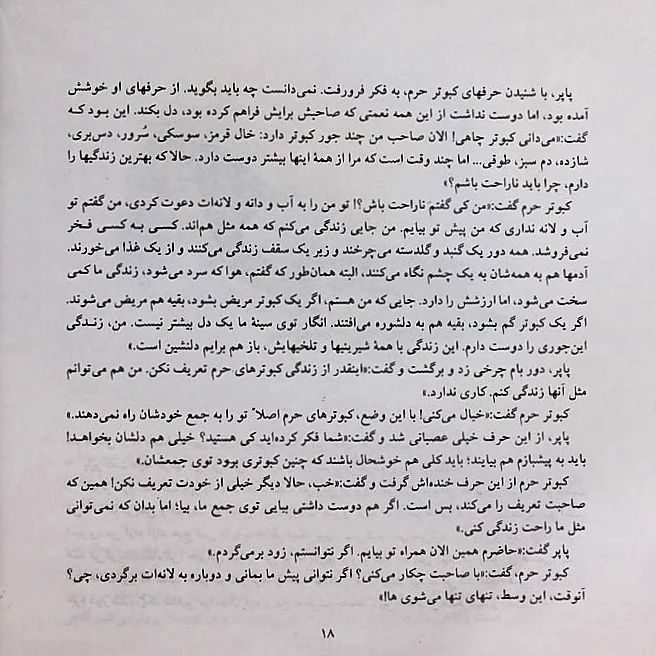 پاپر، با شنیدن حرفهای کبوتر حرم، به فکر فرورفت. نمی‌دانست چه باید بگوید. از حرفهای او خوشش
آمده بود، اما دوست نداشت از این همه نعمتی که صاحبش برایش فراهم کرده بود، دل بکند. این بود که
گفت:«می‌دانی کبوتر چاهی! الان صاحب من چند جور کبوتر دارد: خال قرمز، سوسکی، سُرور، دس‌بری،
شازده، دم سبز، طوقی... اما چند وقت است که مرا از همهٔ اینها بیشتر دوست دارد. حالا که بهترین زندگیها را
دارم، چرا باید ناراحت باشم؟»
کبوتر حرم گفت:«من کی گفتم ناراحت باش؟! تو من را به آب و دانه و لانه‌ات دعوت کردی، من گفتم تو
آب و لانه نداری که من پیش تو بیایم. من جایی زندگی می‌کنم که همه مثل هم‌اند. کسی به کسی فخر
نمی‌فروشد. همه دور یک گنبد و گلدسته می‌چرخند و زیر یک سقف زندگی می‌کنند و از یک غذا می‌خورند.
آدمها هم به همه‌شان به یک چشم نگاه می‌کنند، البته همان‌طور که گفتم، هوا که سرد می‌شود، زندگی ما کمی
سخت می‌شود، اما ارزشش را دارد. جایی که من هستم، اگر یک کبوتر مریض بشود، بقیه هم مریض می‌شوند.
اگر یک کبوتر گم بشود، بقیه هم به دلشوره می‌افتند. انگار توی سینهٔ ما یک دل بیشتر نیست. من، زندگی
این‌جوری را دوست دارم. این زندگی با همهٔ شیرینیها و تلخیهایش، باز هم برایم دلنشین است.»
پاپر، دور بام چرخی زد و برگشت و گفت:«اینقدر از زندگی کبوترهای حرم تعریف نکن. من هم می‌توانم
مثل آنها زندگی کنم. کاری ندارد.»
کبوتر حرم گفت:«خیال می‌کنی! با این وضع، کبوترهای حرم اصلاً تو را به جمع خودشان راه نمی‌دهند.»
پاپر، از این حرف خیلی عصبانی شد و گفت:«شما فکر کرده‌اید کی هستید؟ خیلی هم دلشان بخواهد!
باید به پیشبازم هم بیایند؛ باید کلی هم خوشحال باشند که چنین کبوتری برود توی جمعشان.»
کبوتر حرم از این حرف خنده‌اش گرفت و گفت:«خب، حالا دیگر خیلی از خودت تعریف نکن! همین که
صاحبت تعریف را می‌کند، بس است. اگر هم دوست داشتی بیایی توی جمع ما، بیا؛ اما بدان که نمی‌توانی
مثل ما راحت زندگی کنی.»
پاپر گفت:«حاضرم همین الان همراه تو بیایم. اگر نتوانستم، زود برمی‌گردم.»
کبوتر حرم، گفت:«با صاحبت چکار می‌کنی؟ اگر نتوانی پیش ما بمانی و دوباره به لانه‌ات برگردی، چی؟
آنوقت، این وسط، تنهای تنها می‌شوی ها!»
۱۸